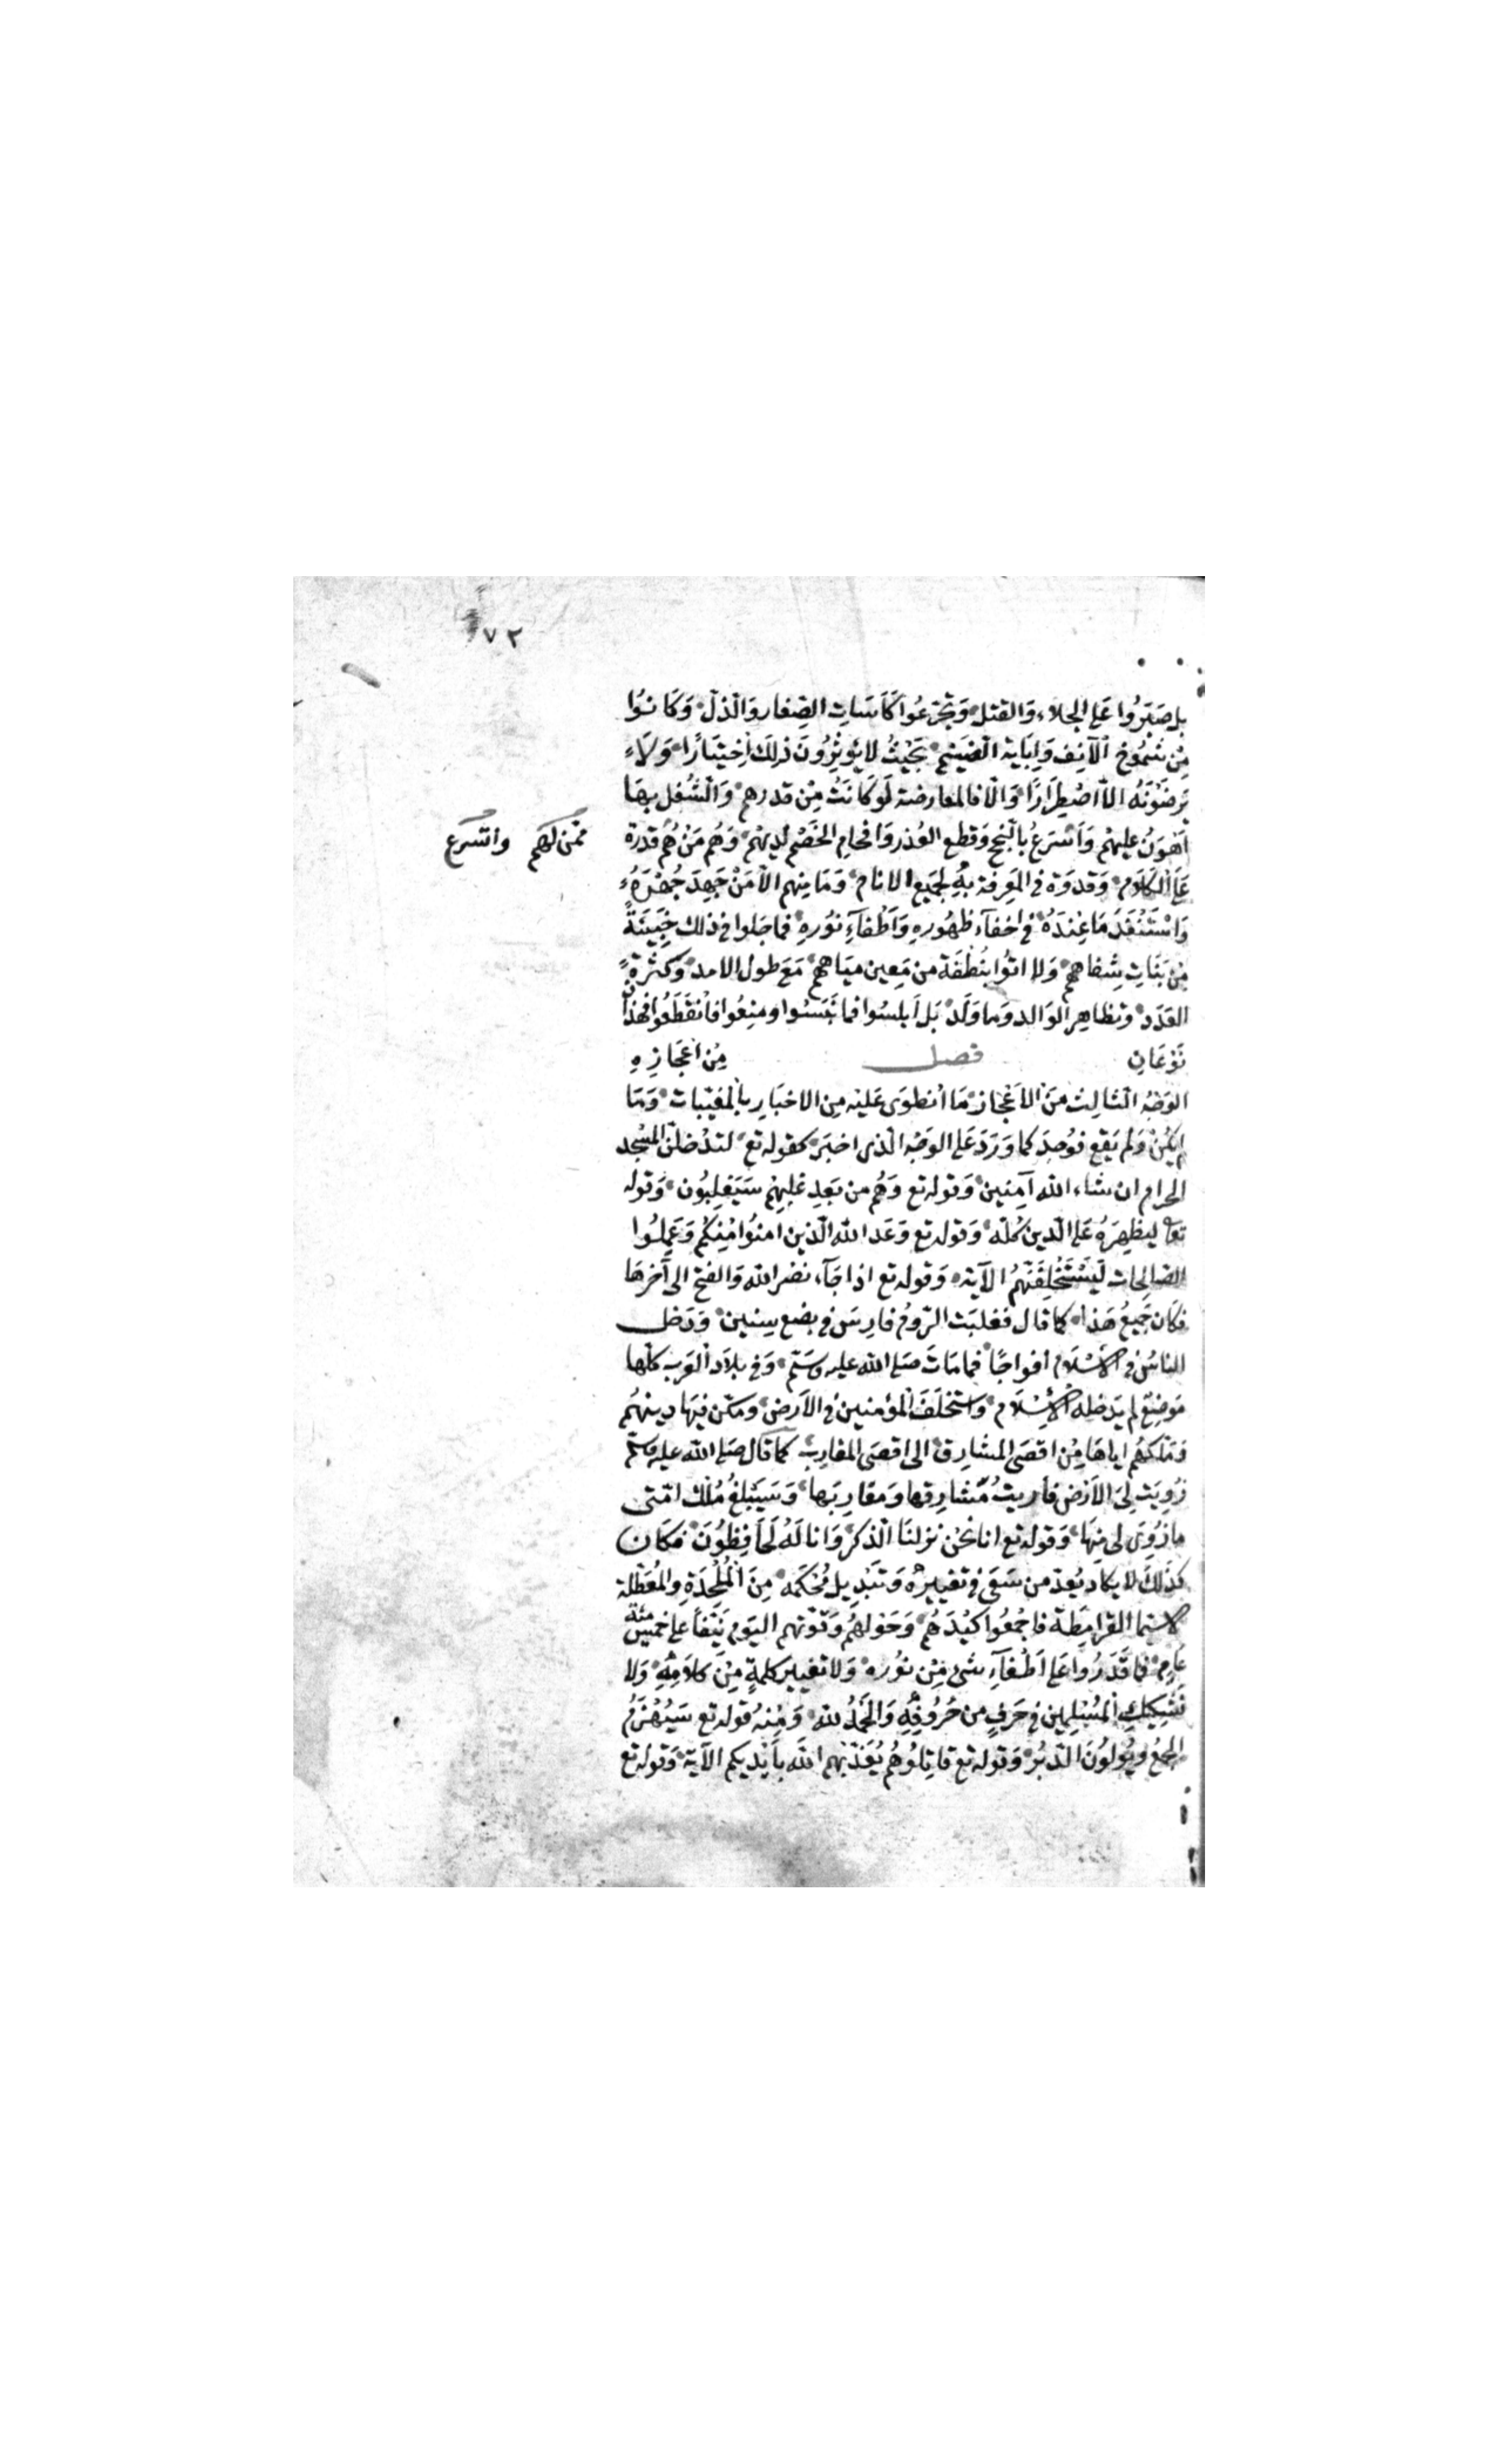 ٧٢
بل صَبَرُوا عَلى الجلاء، وَالقتل وَتجَرّعُوا كَاسَاتِ الصِغار وَالذلّ وَكَانوُا
مِنْ شمُوخ الآنِفِ وَاِبَايةِ الضَيم بحَيْثُ لا يُوثِرُونَ ذلِكَ اختيَارًا وَلَا
يَرضَوْنَهُ الّا اضْطِرَارًا وَالّا فالمعارضة لَو كَانَتْ مِنْ قدرهم وَالشُغل بهَا
اَهوَنُ عليهِمْ وَاَسْرَعُ بالنُجْح وَقطع العُذر وَافحامِ الخَصْم لديهْم وَهُم مَنْ هُم قدرة
ممّن لهم واسرع
عَلَى الكَلَام وَقدوَة فى المَعرِفَة بهِ لجَميع الانام وَمَا مِنهم الاّ مَنْ جَهِدَ جُهْدَهُ
وَاسْتَنْفَدَ مَا عِنْدَهُ فى اخفآء ظهُورهِ وَاَطْفآءِ نوُرهِ فما جَلوا فى ذلك خبيئَةً
مِنْ بَنَاتِ شِفاههِم وَلا اتوُا بنُطْفَة من مَعِين ميَاههِم مَعَ طول الامد وَكثرةِ
العَدَد وتظاهرِ الوَالد وَما وَلَد بَل اَبلسُوا فما نَبَسُوا ومنِعُوا فانقَطَعُوا فهذان
نَوْعَانِ فصل مِن اعْجَازِهِ
الوَجْهُ الثالِث مِنَ الاعْجَاز مَا انْطوَى عَليْه مِنَ الاخبَارِ بالمغيّبات وَمَا
لم يَكُنْ وَلم يَقع فوُجِدَ كما وَرَدَ عَلى الوَجْه الّذى اخبرَ كقوله تع لتدْخلنّ المسْجد
الحرام ان شاء الله آمِنين وَقوله تع وَهُم من بَعدِ غلبِهِم سَيَغلِبُون وَقوله
تعالى ليظهِرَهُ عَلى الدين كُله وَقوله تع وَعَد الله الّذين امنوُا مِنكُم وَعَملُوا
الصَالحات لَيَسْتَخْلِفَنّهُم الآية وَقوله تع اذا جَآء نصْر الله وَالفتح الى آخرهَا
فكَان جَميعُ هَذا كما قال فغلبَت الرّومُ فارِسَ فى بضع سِنين وَدَخل
الناسُ فى الاسْلام افواجًا فما مَاتَ صَلى الله عليه وسَلم وَفى بلَاد العَرب كلّها
مَوضِع لم يَدخله الاسْلام وَاستخلَفَ المؤمنين فى الاَرض وَمكّن فيهَا دينهُم
وَمَلّكهُم اياهَا مِن اقصَى المشَارِق الى اقصَى المغارِب كما قال صَلى الله عليه وسلم
زُوِيَت لِىَ الاَرض فاُريتُ مَشَارِقها وَمغارِبَها وَسَيَبْلغُ مُلْك امّتى
ما زُوِىَ لى مِنهَا وَقوله تع انا نَحْن نزلنَا الذكرَ وَانا لَهُ لَحَافِظُونَ فكَان
كَذلك لا يكاد يُعَدّ من سَعَى فى تغييرِه وَتَبْدِيل مُحْكَمه مِنَ المُلْحِدَةِ وَالمُعَطّلة
لا سيّما القرامِطة فاجْمعُوا كَيْدَهُم وَحَوْلهُم وَقوّتهم اليَوم نيّفاً عَلى خمس مئة
عَام فما قَدَرُوا عَلى اَطْفآءِ شئ مِنْ نوُره وَلا تغيير كلمةٍ مِنْ كَلَامِهِ وَلا
تَشكِيكِ المُسْلِمين فى حَرفٍ من حُرُوفِهِ وَالحَمْدُ لله وَمِنْهُ قوله تع سَيُهْزَمُ
الجَمْعُ وَيُوَلّوُنَ الدّبُرَ وَقوله تع قاتِلُوهُم يُعَذّبْهم الله باَيْديكم الآية وَقوله تع